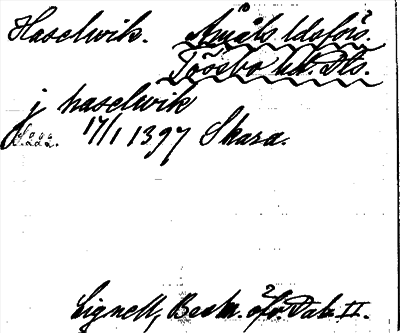 Haselwik. Åmåls. Edsfors.
Tössbo hd. Dls.
j haselwik
17/1 1397 Skara.
Lignell, Besk. öfv Dal. II.